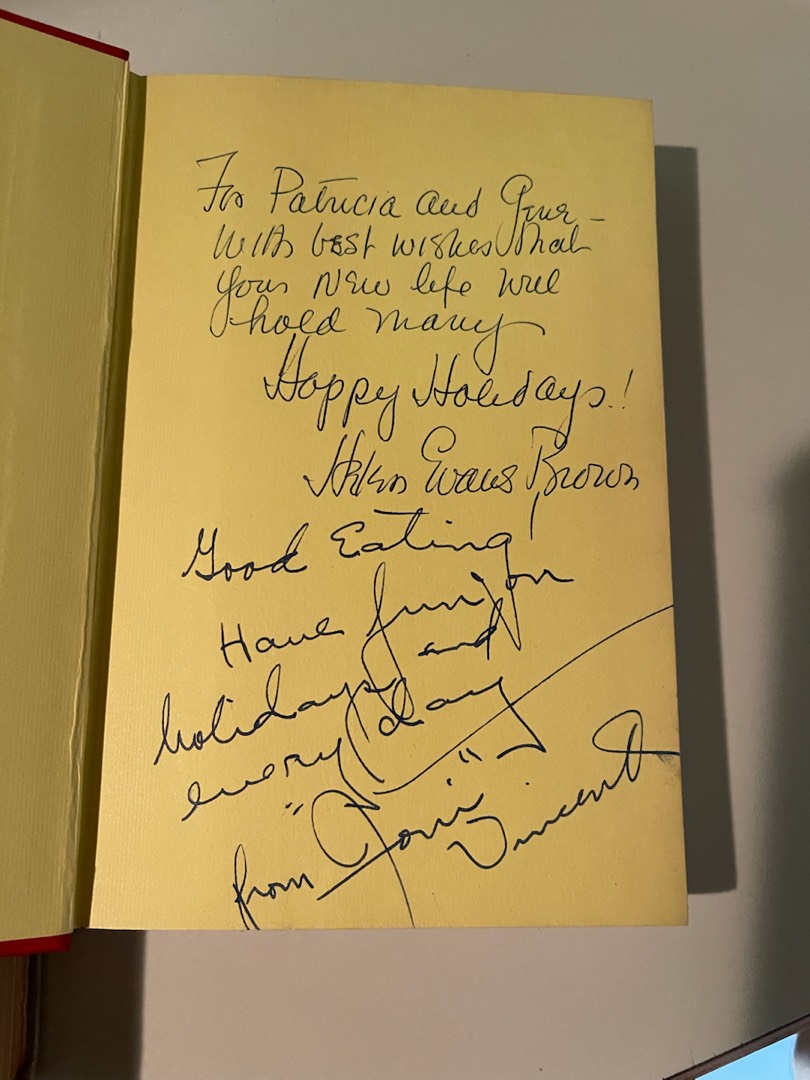 For Patricia and Gene -
With best wishes that
your New life will
hold many
Happy Holidays!
Helen Evans Brown
Good Eating!
Have fun on
holidays and
every day
from "Joni" Vincent